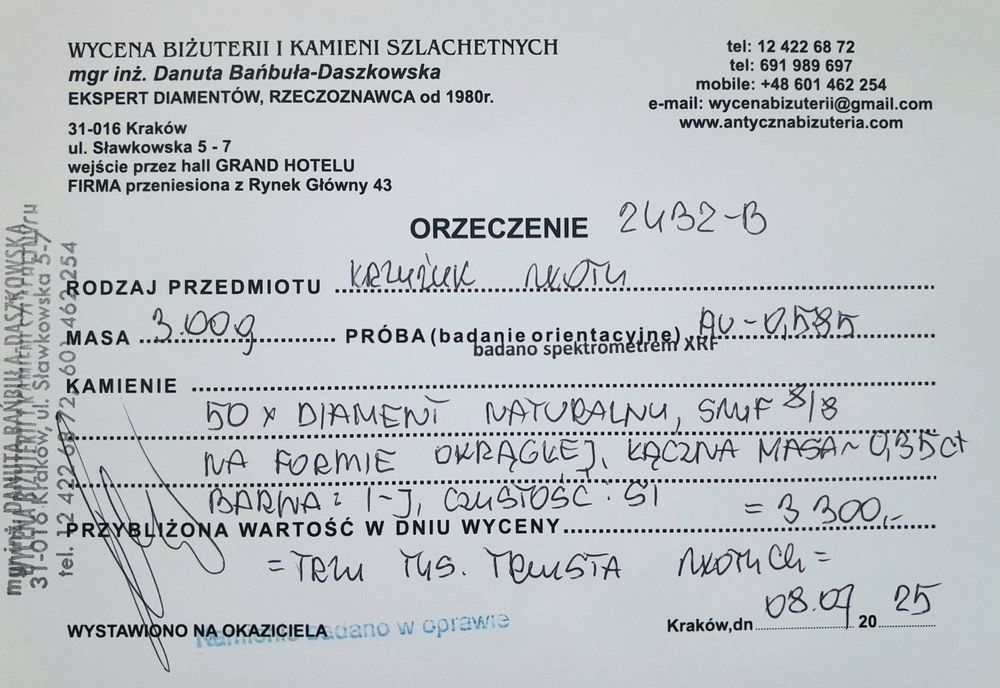 WYCENA BIŻUTERII I KAMIENI SZLACHETNYCH
mgr inż. Danuta Bańbuła-Daszkowska
EKSPERT DIAMENTÓW, RZECZOZNAWCA od 1980r.
31-016 Kraków
ul. Sławkowska 5 - 7
wejście przez hall GRAND HOTELU
FIRMA przeniesiona z Rynek Główny 43
tel: 12 422 68 72
tel: 691 989 697
mobile: +48 601 462 254
e-mail: wycenabizuterii@gmail.com
www.antycznabizuteria.com
ORZECZENIE 2432-B
RODZAJ PRZEDMIOTU KRZYŻYK ZŁOTY
MASA 3.00g PRÓBA (badanie orientacyjne) AU-0,585
badano spektrometrem XRF
KAMIENIE
50 x DIAMENT NATURALNY, SZLIF 8/8
NA FORMIE OKRĄGŁEJ, ŁĄCZNA MASA ~ 0,35 ct
BARWA: I-J, CZYSTOŚĆ: SI
PRZYBLIŻONA WARTOŚĆ W DNIU WYCENY = 3 300,-
= TRZY TYS. TRZYSTA ZŁOTYCH =
WYSTAWIONO NA OKAZICIELA
Kamienie badano w oprawie
Kraków,dn 08.07 20 25
DANUTA BAŃBUŁA-DASZKOWSKA
31-016 Kraków, ul. Sławkowska 5-7
tel. 12 422 68 72, 601-462-254